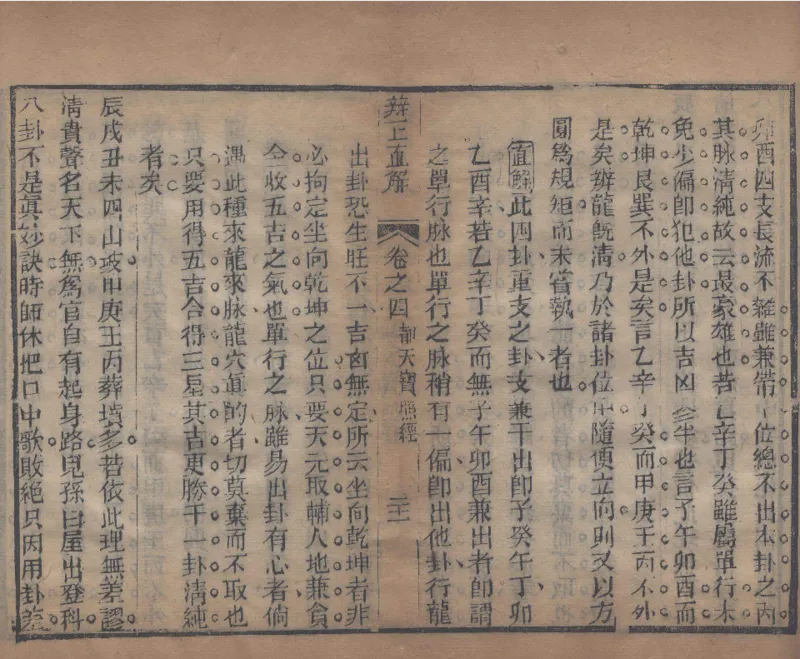 卯酉四支長流不雜雖兼帶干位總不出本卦之內
其脉清純故云最豪雄也若乙辛丁癸雖屬單行未
免少偏卽犯他卦所以吉凶參半也言子午卯酉而
乾坤艮巽不外是矣言乙辛丁癸而甲庚壬丙不外
是矣辨龍旣淸乃於諸卦位中隨便立向則又以方
圓爲規矩而未嘗執一者也
直解此四卦重支之卦支兼干出卽子癸午丁卯
乙酉辛若乙辛丁癸而無子午卯酉兼出者卽謂
之單行脉也單行之脉稍有一偏卽出他卦行龍
辨正直解 卷之四 都天寶照經 二十一
出卦恐生旺不一吉凶無定所云坐向乾坤者非
必拘定坐向乾坤之位只要天元取輔人地兼貪
令收五吉之氣也單行之脉雖易出卦有心者倘
遇此種來龍來脉龍穴眞的者切莫棄而不取也
只要用得五吉合得三星其吉更勝于一卦淸純
者矣
辰戌丑未四山坡甲庚壬丙葬墳多若依此理無差謬
淸貴聲名天下無爲官自有起身路兒孫白屋出登科
八卦不是眞妙訣時師休把口中歌敗絕只因用卦差